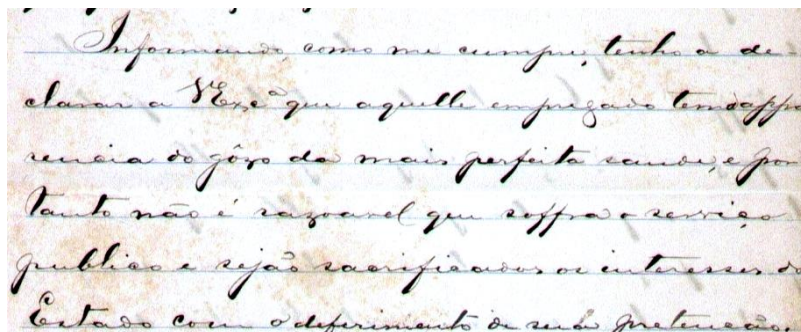 Informando, como me cumpre, tenho a de
clarar a V Exc.ª que aquelle empregado tem a appa
rencia do gôzo da mais perfeita saude, e por
tanto não é razoavel que soffra o serviço
publico e sejão sacrificados os interesses do
Estado com o deferimento de sua pretenção